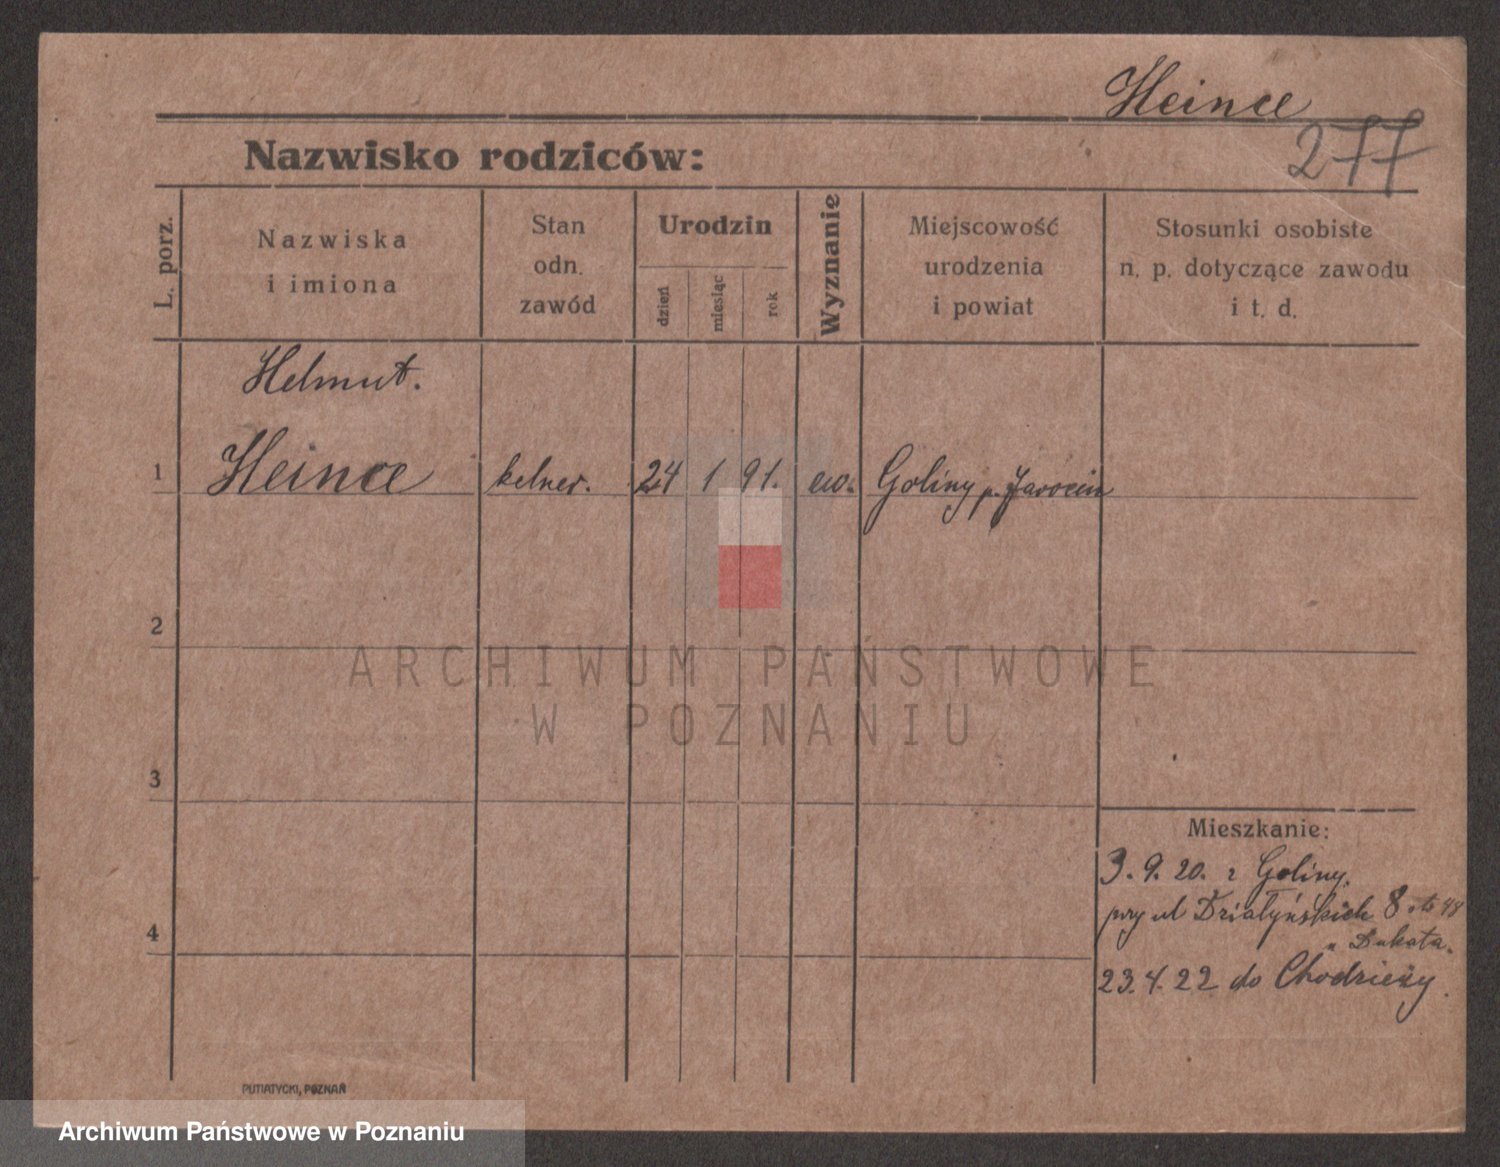 Heince
277
Nazwisko rodziców:
L. porz.
Nazwiska
i imiona
Stan
odn.
zawód
Urodzin
dzień
miesiąc
rok
Wyznanie
Miejscowość
urodzenia
i powiat
Stosunki osobiste
n. p. dotyczące zawodu
i t. d.
Helmut.
1 Heince kelner. 24 1 91. ew. Goliny p. Jarocin
2
3
4
ARCHIWUM PAŃSTWOWE
W POZNANIU
Mieszkanie:
3. 9. 20. z Goliny.
przy ul Działyńskich 8
u Dukata.
23. 4. 22 do Chodzieży.
PUTIATYCKI, POZNAŃ
Archiwum Państwowe w Poznaniu